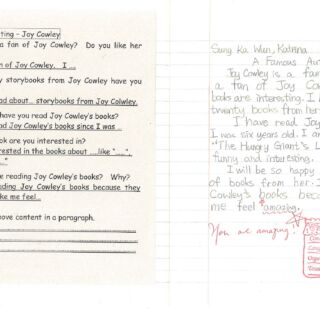 ting - Joy Cowley
a fan of Joy Cowley? Do you like her
n of Joy Cowley. I ....
y storybooks from Joy Cowley have you
ad about... storybooks from Joy Colwley.
have you read Joy Cowley's books?
ad Joy Cowley's books since I was ..
ook are you interested in?
erested in the books about ....like "......",
..."
e reading Joy Cowley's books? Why?
ading Joy Cowley's books because they
ke me feel...
ove content in a paragraph.
Sung Ka Wun, Katrina
A Famous Au
Joy Cowley is a fam
a fan of Joy Cow
books are interesting. I h
twenty books from her
I have read Joy
I was six years old. I am
"The Hungry Giant's L
funny and interesting.
I will be so happy
of books from her. I
Cowley's books beca
me feel amazing.
You are amazing!